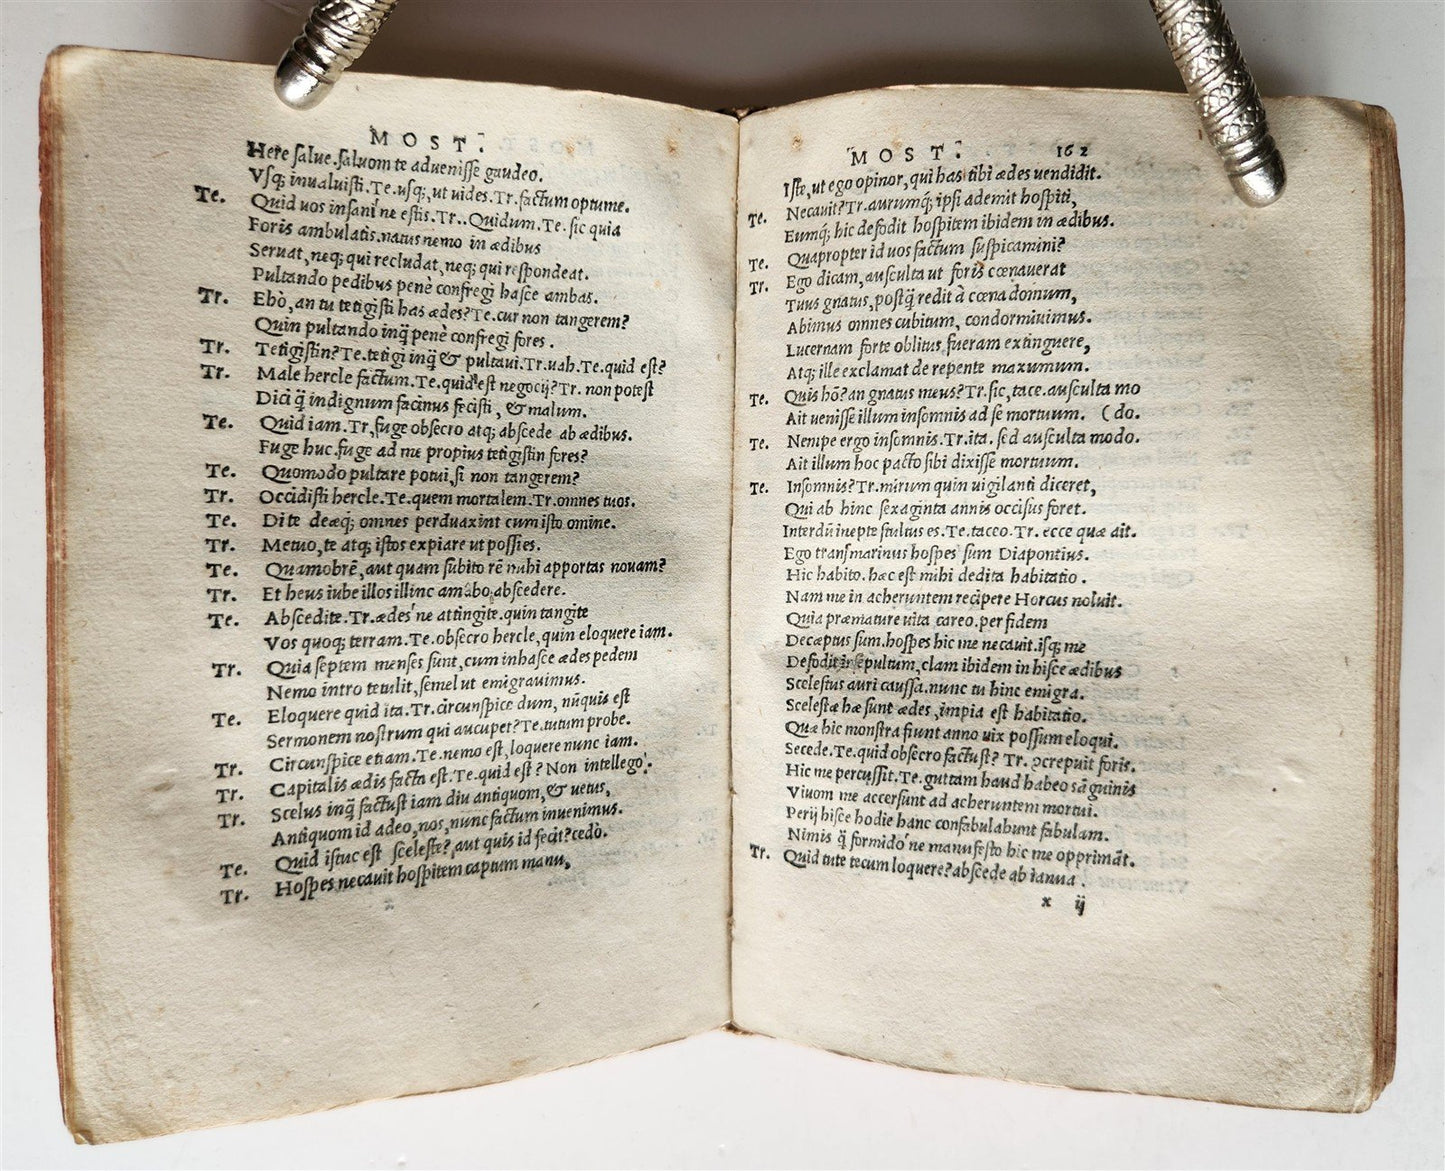 MOST.
Here salue.saluom te aduenisse gaudeo.
Vsq; inualuisti.Te.usq;,ut uides.Tr.factum optume.
Te. Quid uos insani'ne estis.Tr..Quidum.Te.sic quia
Foris ambulatis.natus nemo in ædibus
Seruat,neq; qui recludat,neq; qui respondeat.
Pultando pedibus penè confregi hasce ambas.
Tr. Ebò,an tu tetigisti has ædes?Te.cur non tangerem?
Quin pultando inq̃ penè confregi fores.
Tr. Tetigistin?Te.tetigi inq̃ & pultaui.Tr.uah.Te.quid est?
Tr. Male hercle factum.Te.quid est negocij?Tr. non potest
Dici q̃ indignum facinus fecisti, & malum.
Te. Quid iam.Tr,fuge obsecro atq; abscede ab ædibus.
Fuge huc.fuge ad me propius tetigistin fores?
Te. Quomodo pultare potui,si non tangerem?
Tr. Occidisti hercle.Te.quem mortalem.Tr.omnes tuos.
Te. Di te deæq; omnes perduaxint cum isto omine.
Tr. Metuo,te atq; istos expiare ut possies.
Te. Quamobrē,aut quam subito rē mihi apportas nouam?
Tr. Et heus iube illos illinc ambo abscedere.
Te. Abscedite.Tr.ædes'ne attingite.quin tangite
Vos quoq; terram.Te.obsecro hercle,quin eloquere iam.
Tr. Quia septem menses sunt,cum inhasce ædes pedem
Nemo intro tetulit,semel ut emigrauimus.
Te. Eloquere quid ita.Tr.circunspice dum, nūquis est
Sermonem nostrum qui aucupet?Te.tutum probe.
Tr. Circunspice etiam.Te.nemo est,loquere nunc iam.
Tr. Capitalis ædis facta est.Te.quid est? Non intellego.
Tr. Scelus inq̃ factust iam diu antiquom,& uetus,
Antiquom id adeo,nos,nunc factum inuenimus.
Te. Quid istuc est sceleste? aut quis id fecit?cedò.
Tr. Hospes necauit hospitem captum manu,
MOST. 162
Iste,ut ego opinor,qui has tibi ædes uendidit.
Te. Necauit?Tr.aurumq; ipsi ademit hospiti,
Eumq; hic defodit hospitem ibidem in ædibus.
Te. Quapropter id uos factum suspicamini?
Tr. Ego dicam,ausculta ut foris cœnauerat
Tuus gnatus,postq̃ redit à cœna domum,
Abimus omnes cubitum, condormiuimus.
Lucernam forte oblitus fueram extinguere,
Atq; ille exclamat de repente maxumum.
Te. Quis hō?an gnatus meus?Tr.sic,tace.ausculta mo
Ait uenisse illum insomnis ad se mortuum. (do.
Te. Nempe ergo insomnis.Tr.ita. sed ausculta modo.
Ait illum hoc pacto sibi dixisse mortuum.
Te. Insomnis?Tr.mirum quin uigilanti diceret,
Qui ab hinc sexaginta annis occisus foret.
Interdū inepte stultus es.Te.taceo.Tr. ecce quæ ait.
Ego transmarinus hospes sum Diapontius.
Hic habito.hæc est mihi dedita habitatio.
Nam me in acheruntem recipere Horcus noluit.
Quia præmature uita careo.per fidem
Decæptus sum.hospes hic me necauit.isq; me
Defodit insepultum,clam ibidem in hisce ædibus
Scelestus auri caussa.nunc tu hinc emigra.
Scelestæ hæ sunt ædes,impia est habitatio.
Quæ hic monstra fiunt anno uix possum eloqui.
Secede.Te.quid obsecro factust? Tr. gcrepuit foris.
Hic me percussit.Te.guttam haud habeo sāguinis
Viuom me accersunt ad acheruntem mortui.
Perij hisce hodie hanc confabulabunt fabulam.
Nimis q̃ formido'ne manufesto hic me opprimāt.
Tr. Quid tute tecum loquere?abscede ab ianua.
x ij